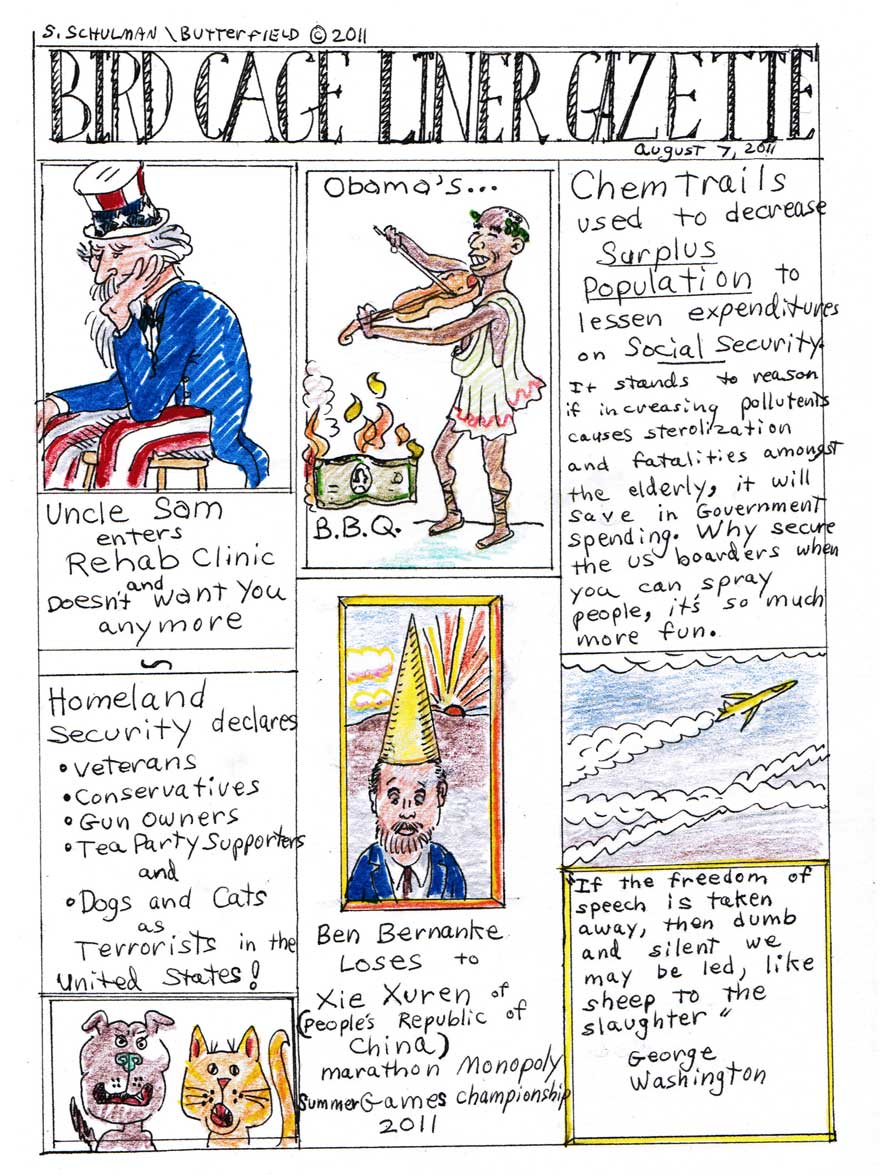 S. SCHULMAN \ BUTTERFIELD © 2011
BIRD CAGE LINER GAZETTE
August 7, 2011
Uncle Sam
enters
Rehab Clinic
and
Doesn't want You
anymore
Homeland
Security declares
• Veterans
• Conservatives
• Gun Owners
• Tea Party Supporters
and
• Dogs and Cats
as
Terrorists in the
United States!
Obama's...
B.B.Q.
Ben Bernanke
Loses to
Xie Xuren of
(People's Republic of
China)
marathon Monopoly
Summer Games Championship
2011
Chem Trails
used to decrease
Surplus
Population to
lessen expenditures
on Social Security.
It stands to reason
if increasing pollutents
causes sterolization
and fatalities amongst
the elderly, it will
save in Government
spending. Why secure
the US boarders when
you can spray
people, it's so much
more fun.
"If the freedom of
speech is taken
away, then dumb
and silent we
may be led, like
sheep to the
slaughter"
George
Washington